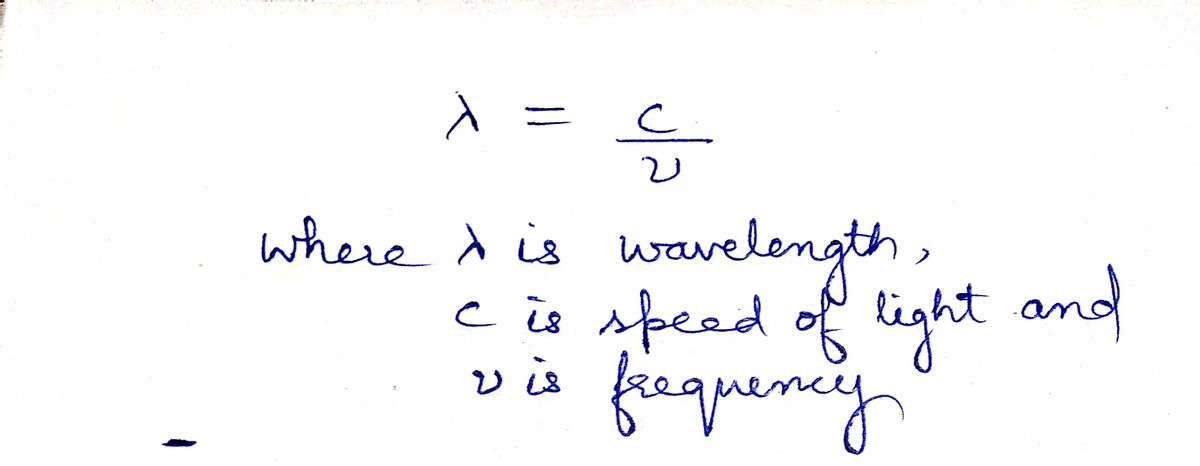 λ = c/ν
where λ is wavelength,
c is speed of light and
ν is frequency